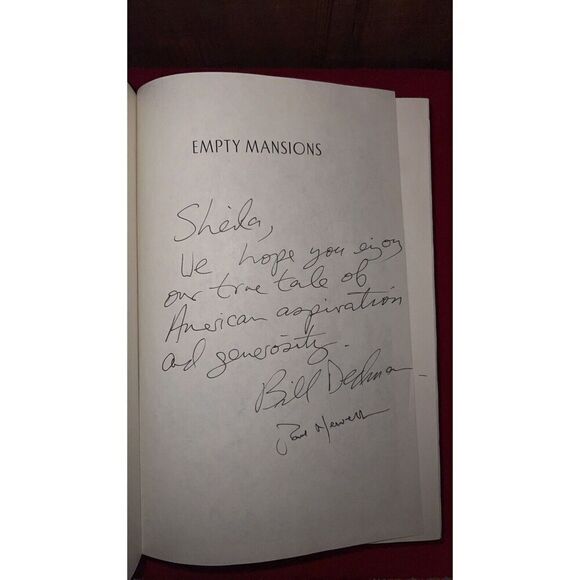 EMPTY MANSIONS
Sheila,
We hope you enjoy
our true tale of
American aspiration
and generosity.
Bill Dedman
Paul Newell